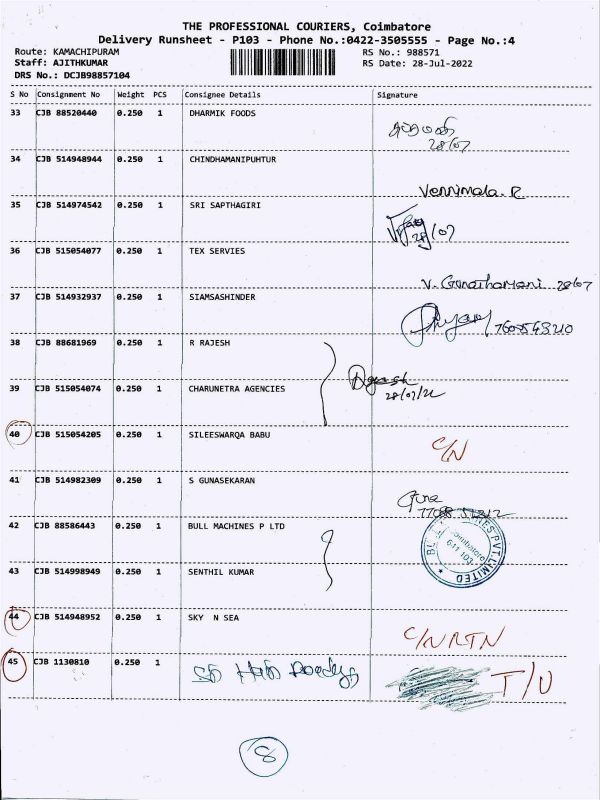 THE PROFESSIONAL COURIERS, Coimbatore
Delivery Runsheet - P103 - Phone No.:0422-3505555 - Page No.:4
Route: KAMACHIPURAM RS No.: 988571
Staff: AJITHKUMAR RS Date: 28-Jul-2022
DRS No.: DCJB98857104
S No Consignment No Weight PCS Consignee Details Signature
33 CJB 88520440 0.250 1 DHARMIK FOODS
28/07
34 CJB 514948944 0.250 1 CHINDHAMANIPUHTUR
Vennimala. R
35 CJB 514974542 0.250 1 SRI SAPTHAGIRI
28/07
36 CJB 515054077 0.250 1 TEX SERVIES
V. Gunathamani 28/07
37 CJB 514932937 0.250 1 SIAMSASHINDER
38 CJB 88681969 0.250 1 R RAJESH
39 CJB 515054074 0.250 1 CHARUNETRA AGENCIES
28/07/22
40 CJB 515054205 0.250 1 SILEESWARQA BABU
C/N
41 CJB 514982309 0.250 1 S GUNASEKARAN
Guna
42 CJB 88586443 0.250 1 BULL MACHINES P LTD
PVT. LIMITED
Coimbatore
641 103
43 CJB 514998949 0.250 1 SENTHIL KUMAR
44 CJB 514948952 0.250 1 SKY N SEA
C/N RTN
45 CJB 1130810 0.250 1
T/U
8